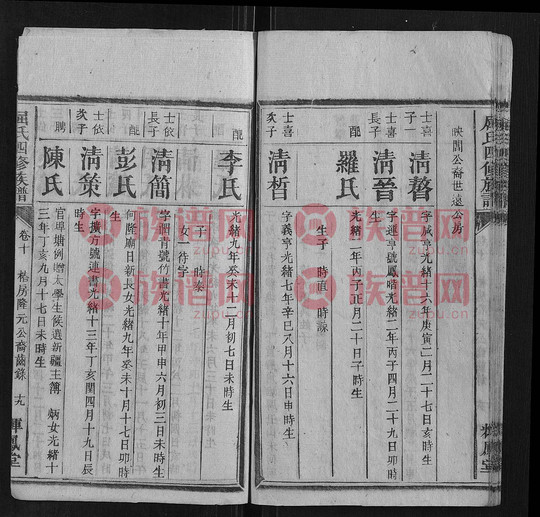 映閣公裔世遠公房
士喜
清嶅
字咸亨光緒十六年庚寅二月二十七日亥時生
士喜長子
清晉
字運亨號鳳晴光緒二年丙子四月二十九日卯時生
配
羅氏
光緒二年丙子正月二十日子時生
生子 時直 時諒
士喜次子
清晳
字義亨光緒七年辛巳八月十六日申時生
配
李氏
光緒九年癸未十二月初七日未時生
子一 時泰
女一 待字
士依長子
清簡
字書光緒十年甲申六月初三日未時生
配
彭氏
何隆廟日新長女光緒九年癸未十月十七日卯時生
士依次子
清策
字擴方號連書光緒十三年丁亥閏四月十九日辰時生
聘
陳氏
官埠塘例贈太學生候選新疆主簿 炳女光緒十三年丁亥九月十七日未時生
屈氏四修族譜
卷十
格房隆元公裔齒錄
十九
輝鳳堂
族谱网
zupu.cn